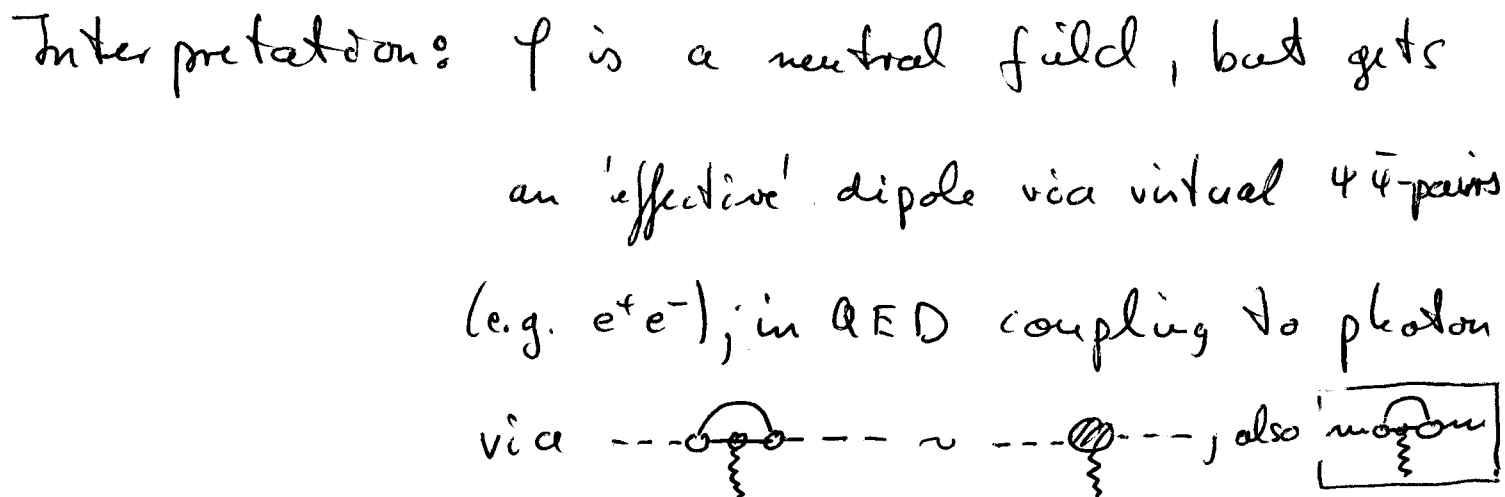 Interpretation: φ is a neutral field, but gets
an 'effective' dipole via virtual ψ ψ̄-pairs
(e.g. e⁺e⁻); in QED coupling to photon
via ~ , also